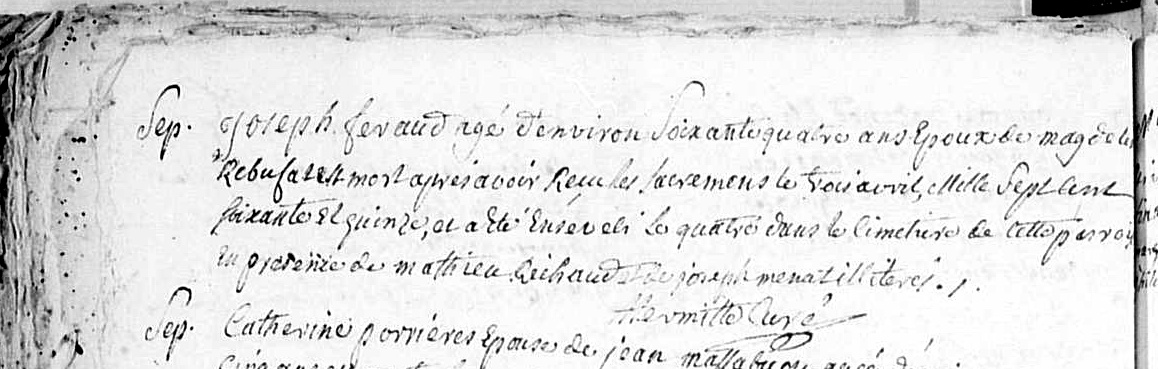 Sep. Joseph feraud agé d'environ Soixante quatre ans Epoux de magdelei
Rebufat est mort apres avoir Reçu les sacremens le trois avril, Mille Sept Cent
soixante Et quinze, et a Eté Enseveli Le quatre dans le Cimetiere de Cette parroi
En presence de mathieu Richaud Et de joseph menat illiterés./.
Curé
Sep. Catherine porrières Epouse de jean